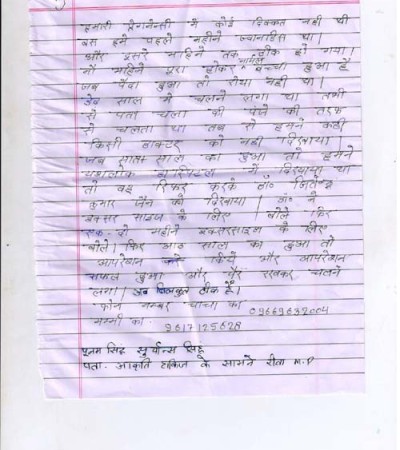 हमारी प्रेगनेन्सी में कोई दिक्कत नही थी
बस हमे पहले महीने ज्वानडिस था।
और दूसरे महिने तक ठीक हो गया।
नौ महिने पूरा होकर नार्मल बच्चा हुआ है
जब पैदा हुआ तो रोया नही था।
डेढ साल में चलने लगा था तभी
से पता चला की पंजे की तरफ
से चलता था तब से हमने कही
किसी डाक्टर को नही दिखाया।
जब सात साल का हुआ तो हमने
हास्पिटल में दिखाया था
तो वह रिफर करके डॉ० जितेन्द्र
कुमार जैन को दिखाया। डॉ. ने
एक्सरसाइज के लिए बोले फिर
एक-दो महीने एक्सरसाइज के लिए
बोले। फिर आठ साल का हुआ तो
आपरेशन किये और आपरेशन
सफल हुआ और पैर रखकर चलने
लगा। अब बिल्कुल ठीक है।
फोन नम्बर चाचा का 09669632004
मम्मी का. 9617125628
पूनम सिंह सूर्यान्स सिंह
पता. आकृति टाकिज के सामने रीवा M.P